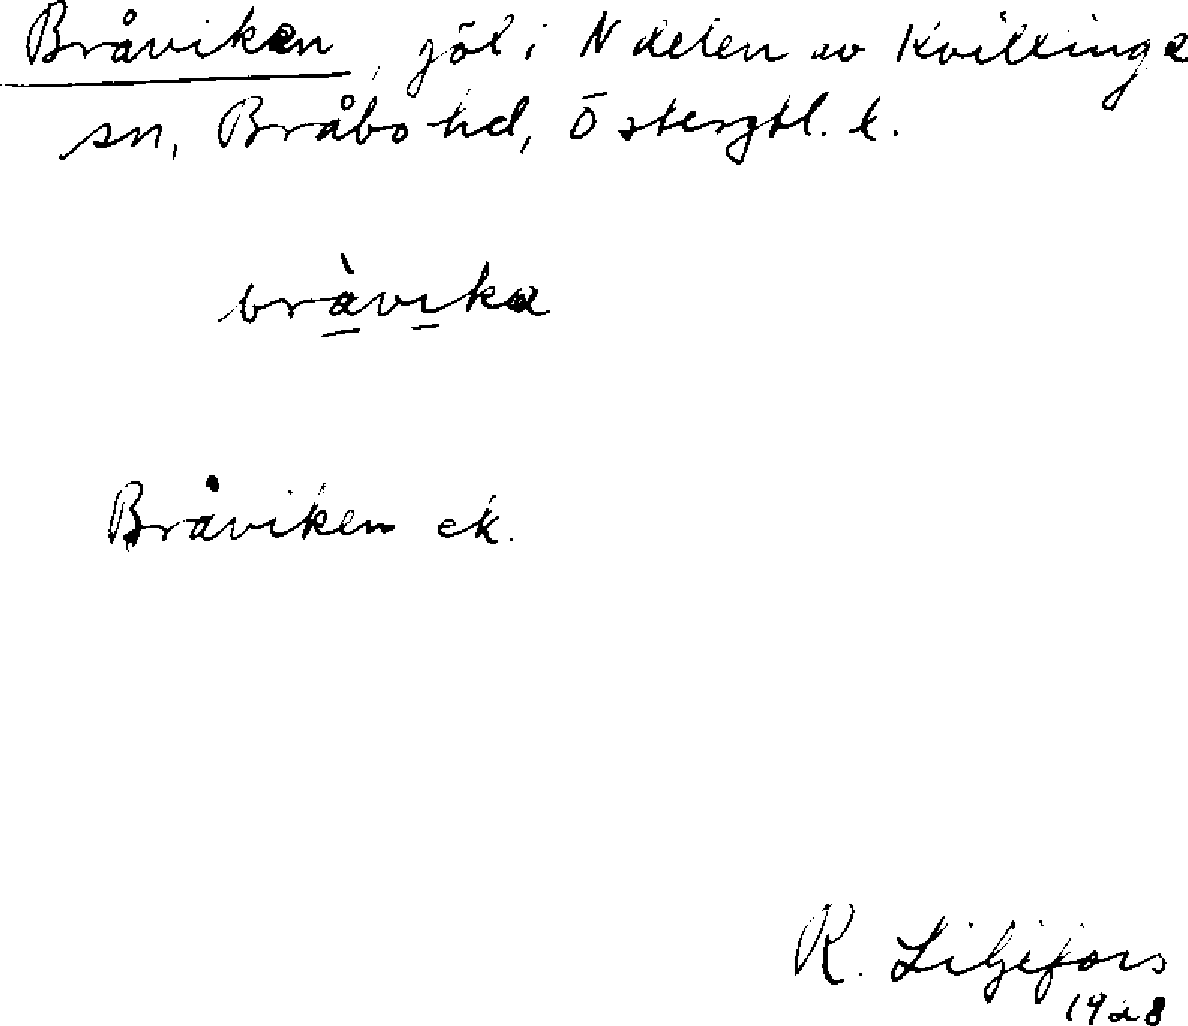 Bråviken, göl i N delen av Kvillinge
sn, Bråbo hd, Östergtl. l.
bràvika
Bråviken ek.
R. Liljefors
1928